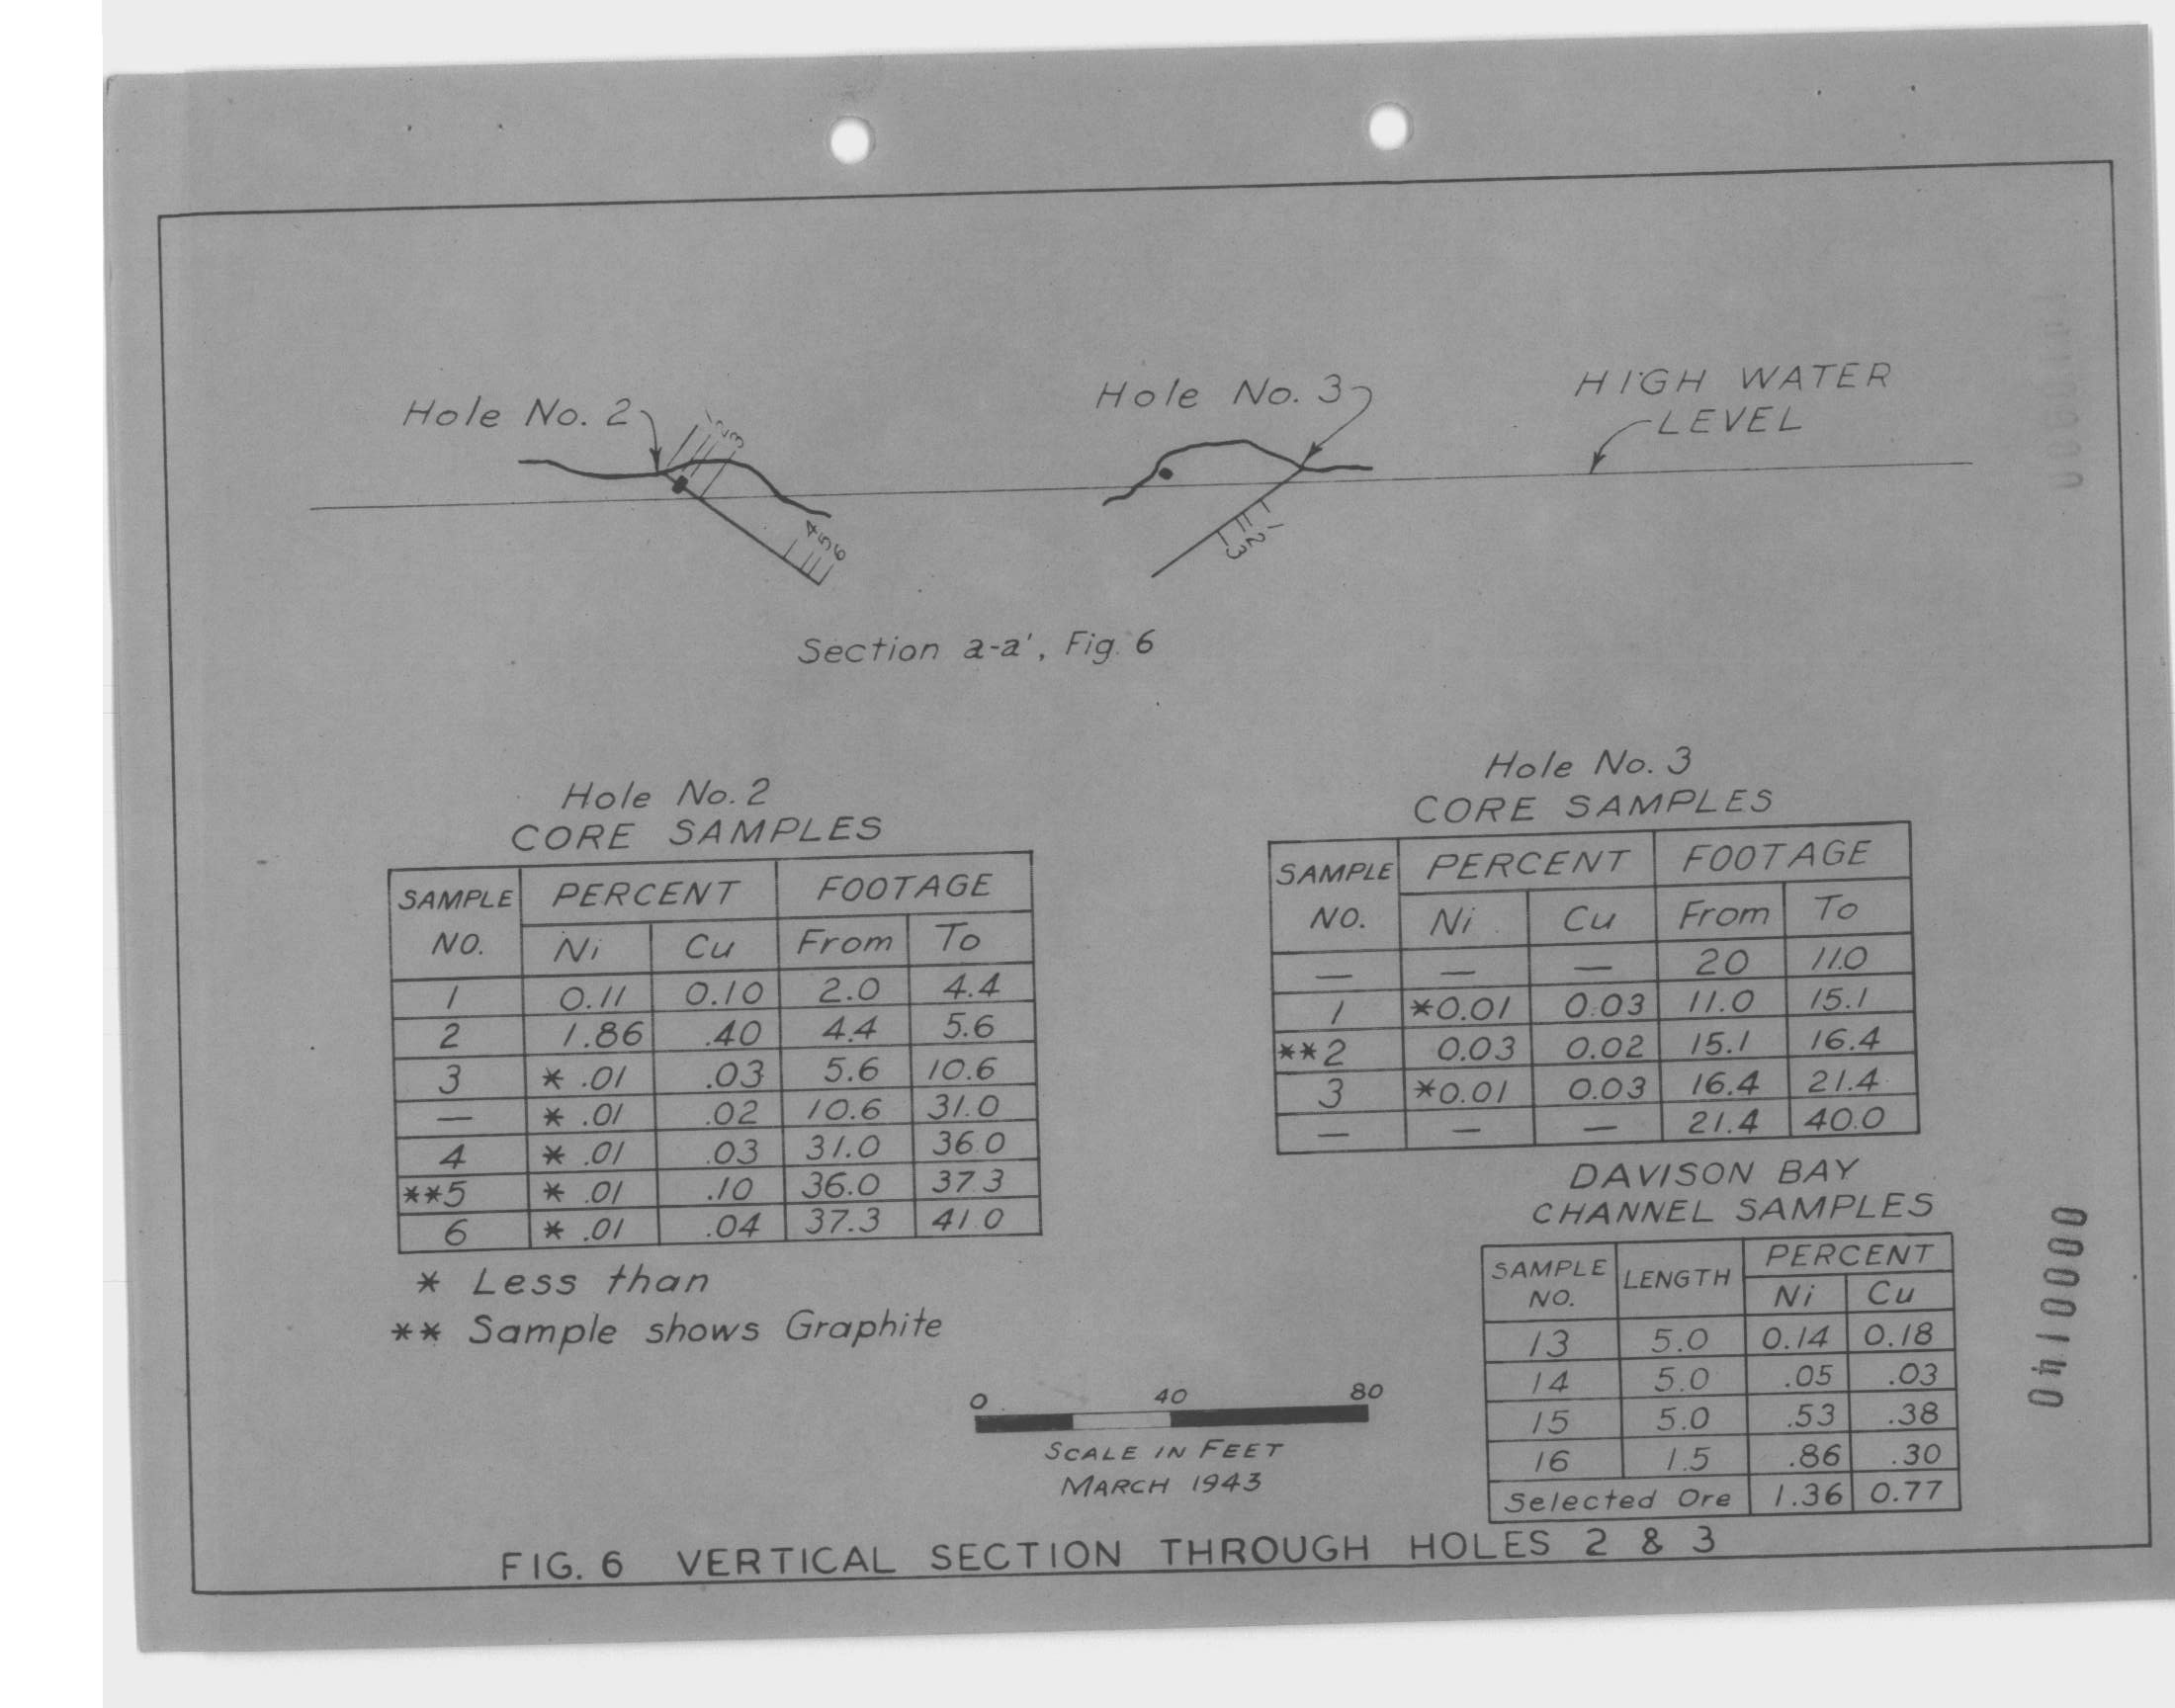 Hole No. 2
1
2
3
4
5
6
Hole No. 3
1
2
3
HIGH WATER
LEVEL
Section a-a', Fig. 6
Hole No. 2
CORE SAMPLES
SAMPLE NO. PERCENT FOOTAGE
Ni Cu From To
1 0.11 0.10 2.0 4.4
2 1.86 .40 4.4 5.6
3 * .01 .03 5.6 10.6
— * .01 .02 10.6 31.0
4 * .01 .03 31.0 36.0
**5 * .01 .10 36.0 37.3
6 * .01 .04 37.3 41.0
* Less than
** Sample shows Graphite
Hole No. 3
CORE SAMPLES
SAMPLE NO. PERCENT FOOTAGE
Ni Cu From To
— — — 20 11.0
1 *0.01 0.03 11.0 15.1
**2 0.03 0.02 15.1 16.4
3 *0.01 0.03 16.4 21.4
— — — 21.4 40.0
DAVISON BAY
CHANNEL SAMPLES
SAMPLE NO. LENGTH PERCENT
Ni Cu
13 5.0 0.14 0.18
14 5.0 .05 .03
15 5.0 .53 .38
16 1.5 .86 .30
Selected Ore 1.36 0.77
0 40 80
SCALE IN FEET
MARCH 1943
FIG. 6 VERTICAL SECTION THROUGH HOLES 2 & 3
0000140